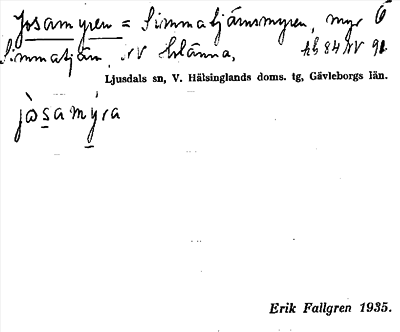 Josamyren = Simmatjärnsmyren, myr Ö
Simmatjärn, NV Hlänna,
Ljusdals sn, V. Hälsinglands doms. tg, Gävleborgs län.
jòsamýra
Erik Fallgren 1935.